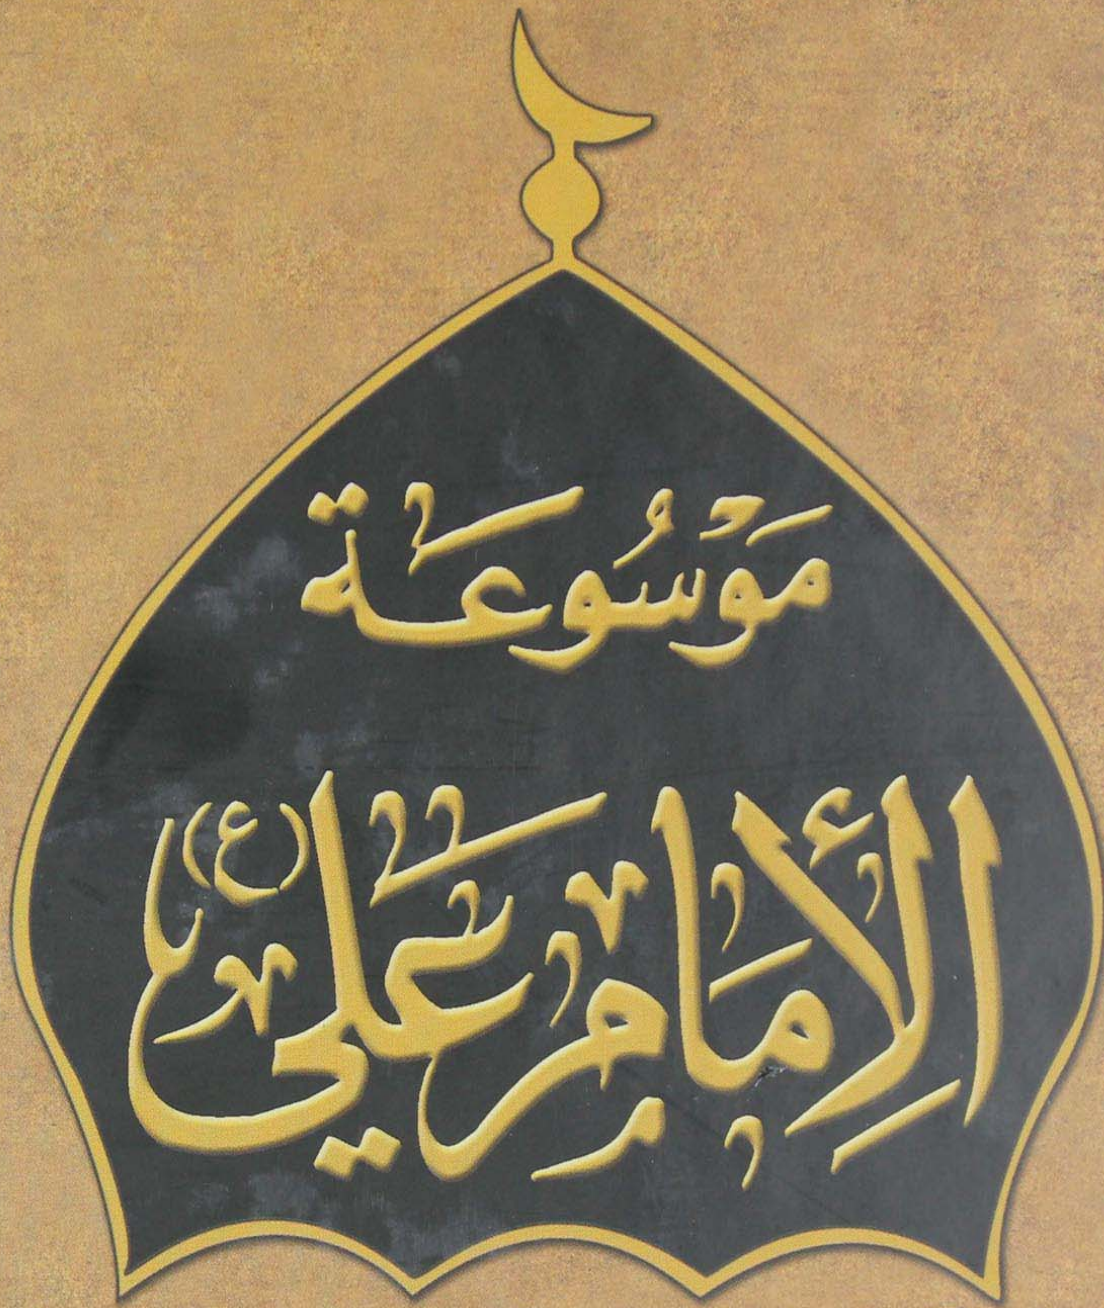 مَوْسُوعَة
الإِمَامِ عَلي (ع)